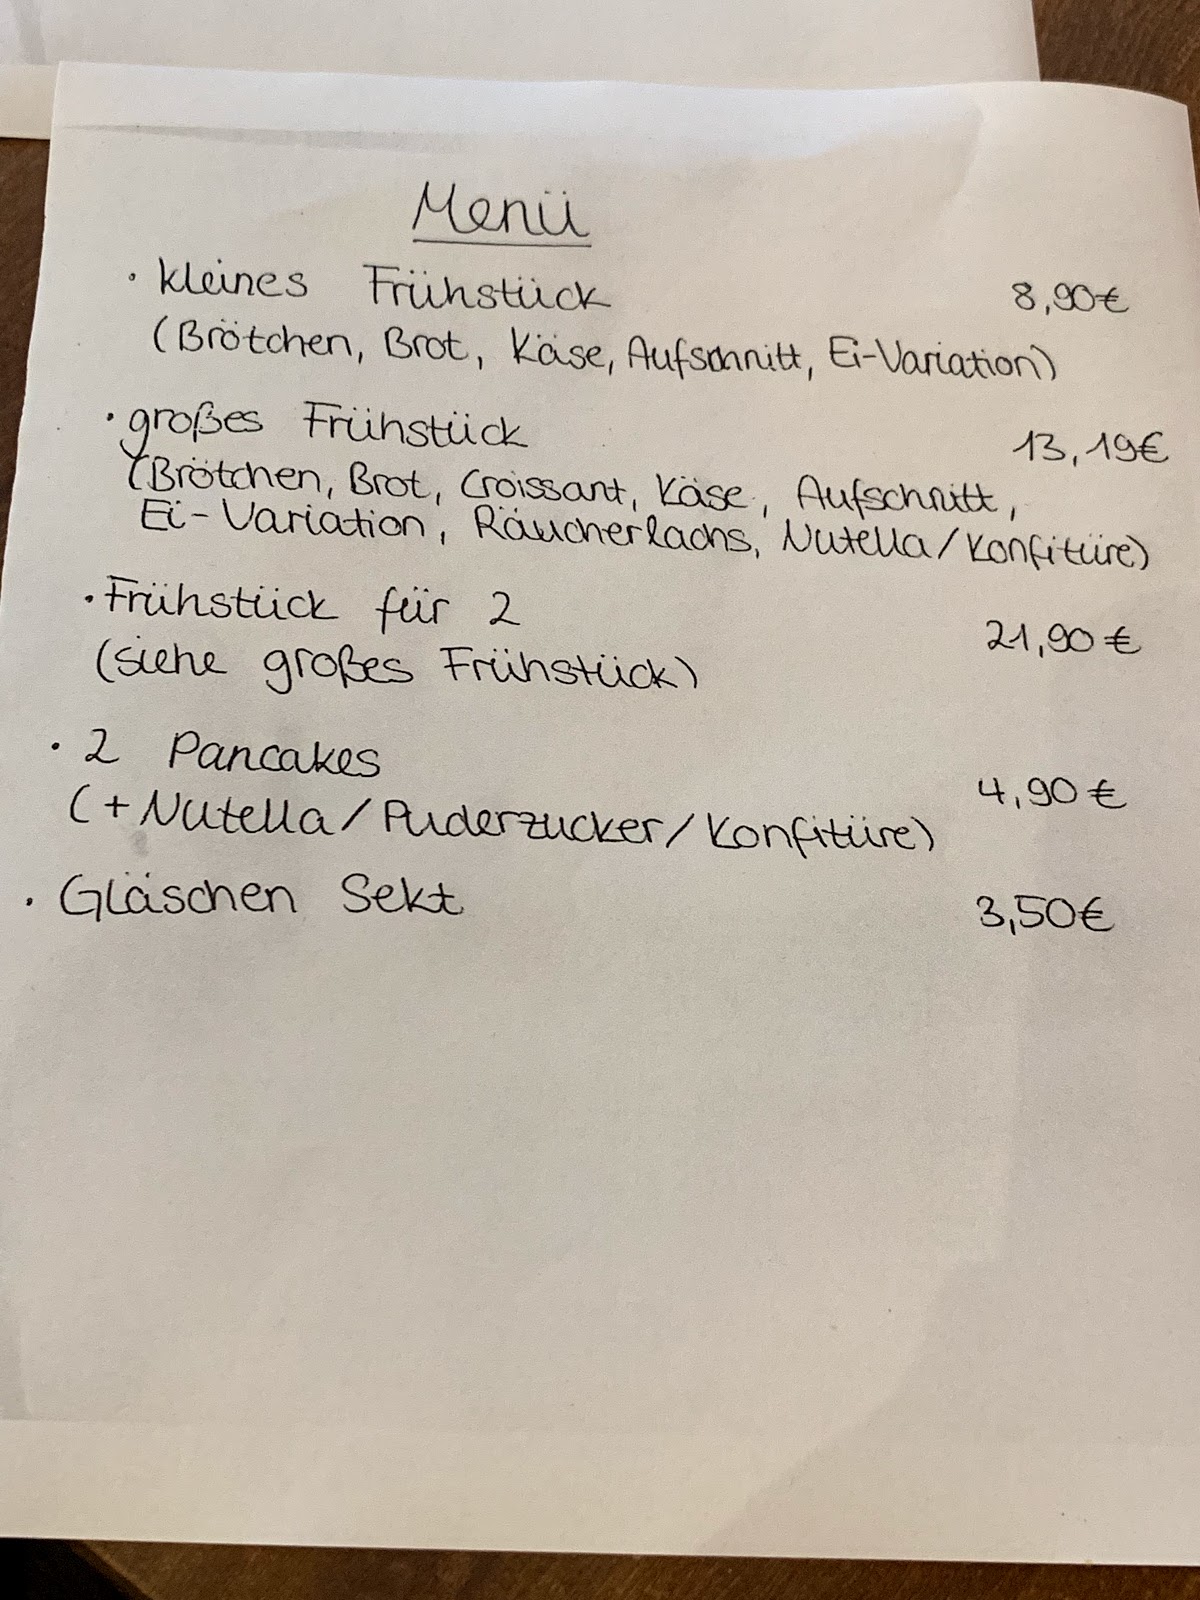 Menü
· kleines Frühstück 8,90€
(Brötchen, Brot, Käse, Aufschnitt, Ei-Variation)
· großes Frühstück 13,19€
(Brötchen, Brot, Croissant, Käse, Aufschnitt,
Ei-Variation, Räucherlachs, Nutella/Konfitüre)
· Frühstück für 2 21,90€
(siehe großes Frühstück)
· 2 Pancakes 4,90€
(+Nutella/Puderzucker/Konfitüre)
· Gläschen Sekt 3,50€